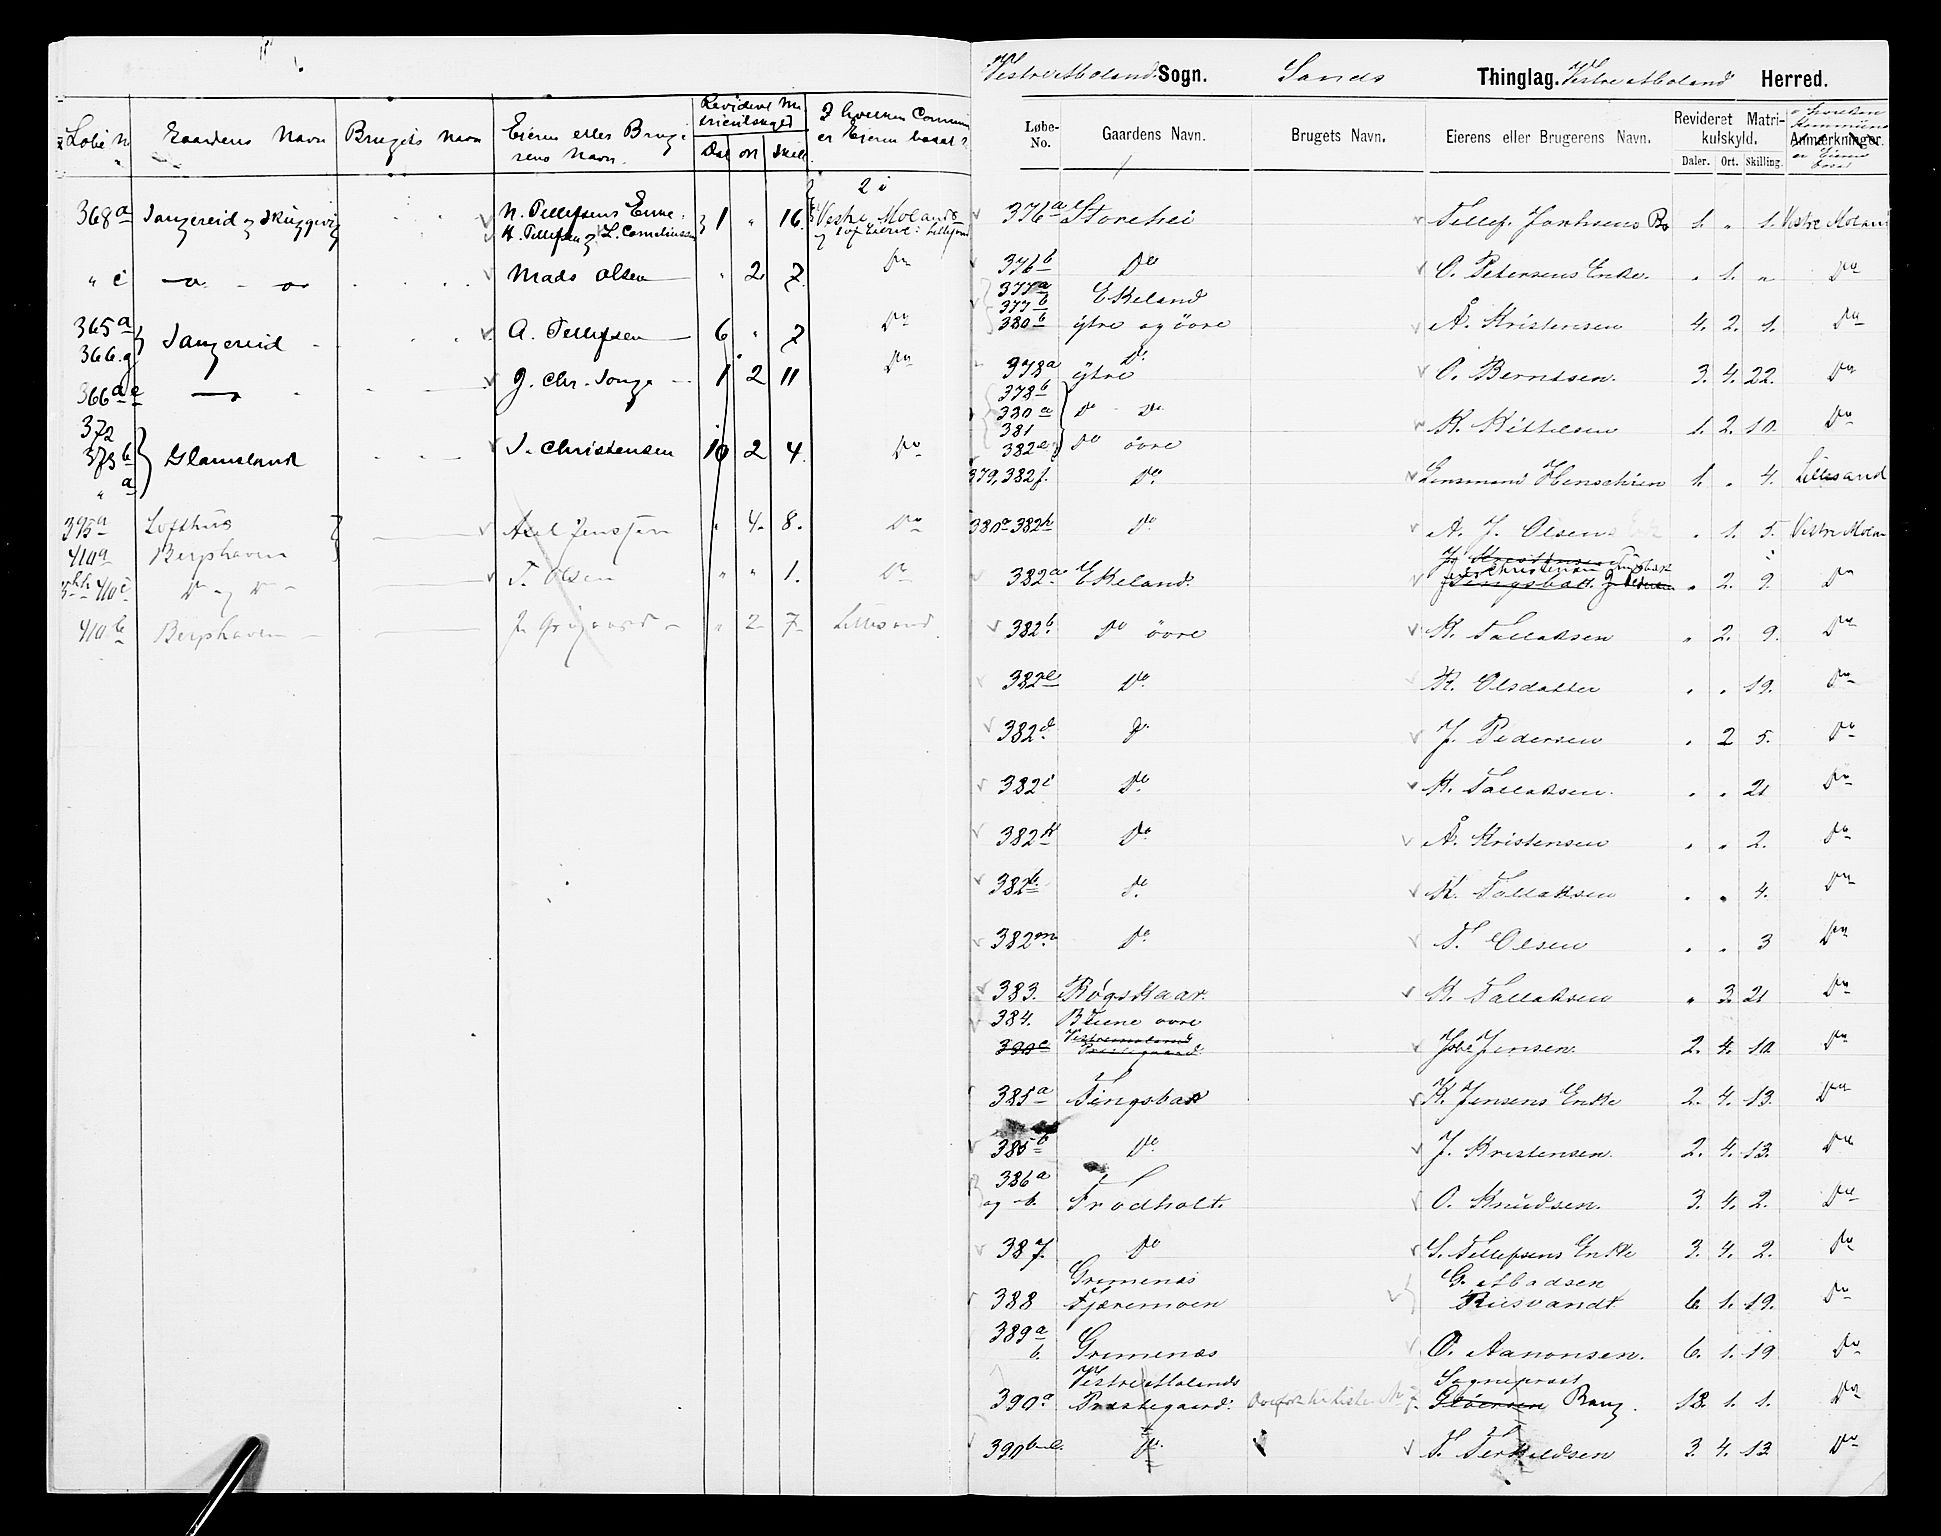 Løbe N
Gaardens Navn
Brugets Navn
Eieren eller Bruge-
rens Navn.
Revideret Ma-
trikulskyld
Dal
ort
Skill
I hvilken Commune
er Eieren bosat?
368a Sangereid og Skuggevig N. Tellefsens Enke 1 " 16. Vestre Moland
K. Tellefsen og L. Corneliussen
" c Mads Olsen " 2 7. Do
365a
366.g Sangereid A. Tellefsen 6 " 7 Do
366a e J. Chr. Songe 1 2 11 Do
372
373b
" a Glamsland J. Christensen 10 2 4. Do
395a Lofthus Axel Jenssen " 4. 8. Do
410a Berghaven
410c Do og Do T. Olsen " " 1. Do
410b Berghaven J. Grögaard " 2 7 Lillesand
Vestre Moland Sogn. Sands Thinglag. Vestre Moland Herred.
Løbe-
No.
Gaardens Navn.
Brugets Navn.
Eierens eller Brugerens Navn.
Revideret Matri-
kulskyld.
Daler. Ort. Skilling.
Anmærkninger.
i hvilken
Kommune
er Eieren
bosat
376a Storehei Tellef 1. " 1. Vestre Moland
376b Do O. Petersens Enke. " 1. " Do
377a
377b Ekeland
380b ytre og övre Å. Kristensen 4. 2. 1. Do
378a Do ytre O. Berntsen. 3. 4. 22. Do
378b
380a Do Do
381
382 Do övre K. Kittelsen 1. 2. 10. Do
379, 382f. Do Lensmand Henschien 1. " 4. Lillesand
380a 382h Do A. J. Olsens Enke " 1. 5. Vestre Moland
382a Ekeland. J. Christensen Tingsbak " 2. 9. Do
382b. Do övre K. Tallaksen " 2. 9. Do
382e Do K. Olsdatter " " 19. Do
382d. Do J. Pedersen " 2 5. Do
382i Do K. Tallaksen. " " 21 Do
382k Do Å. Kristensen " " 2. Do
382 Do K. Tallaksen " " 4. Do
382m Do T. Olsen " " 3 Do
383. Bögskaar. K. Tallaksen " 3. 21 Do
384. Övre
390c Vestremoland
Prestegaard Jens Jensen. 2. 4. 10. Do
385a Tingsbak K. Jensens Enke 2. 4. 13. Do
385b Do J. Kristensen. 2. 4. 13. Do
386a
og b. Trödholt. O. Knudsen. 3. 4. 2. Do
387. Do S. Tellefsens Enke 3. 4. 2. Do
388 Grimenæs
Fjæremoen G. Madsen
Riisvandt 6. 1. 19. Do
389a
b. Grimenæs O. Aanonsen. 6. 1. 19 Do
390a Vestre Molands
Prestegaard. Sogneprest
Bang. 18. 1. 1. Do
390 Do T. Terkildsen 3. 4. 13 Do